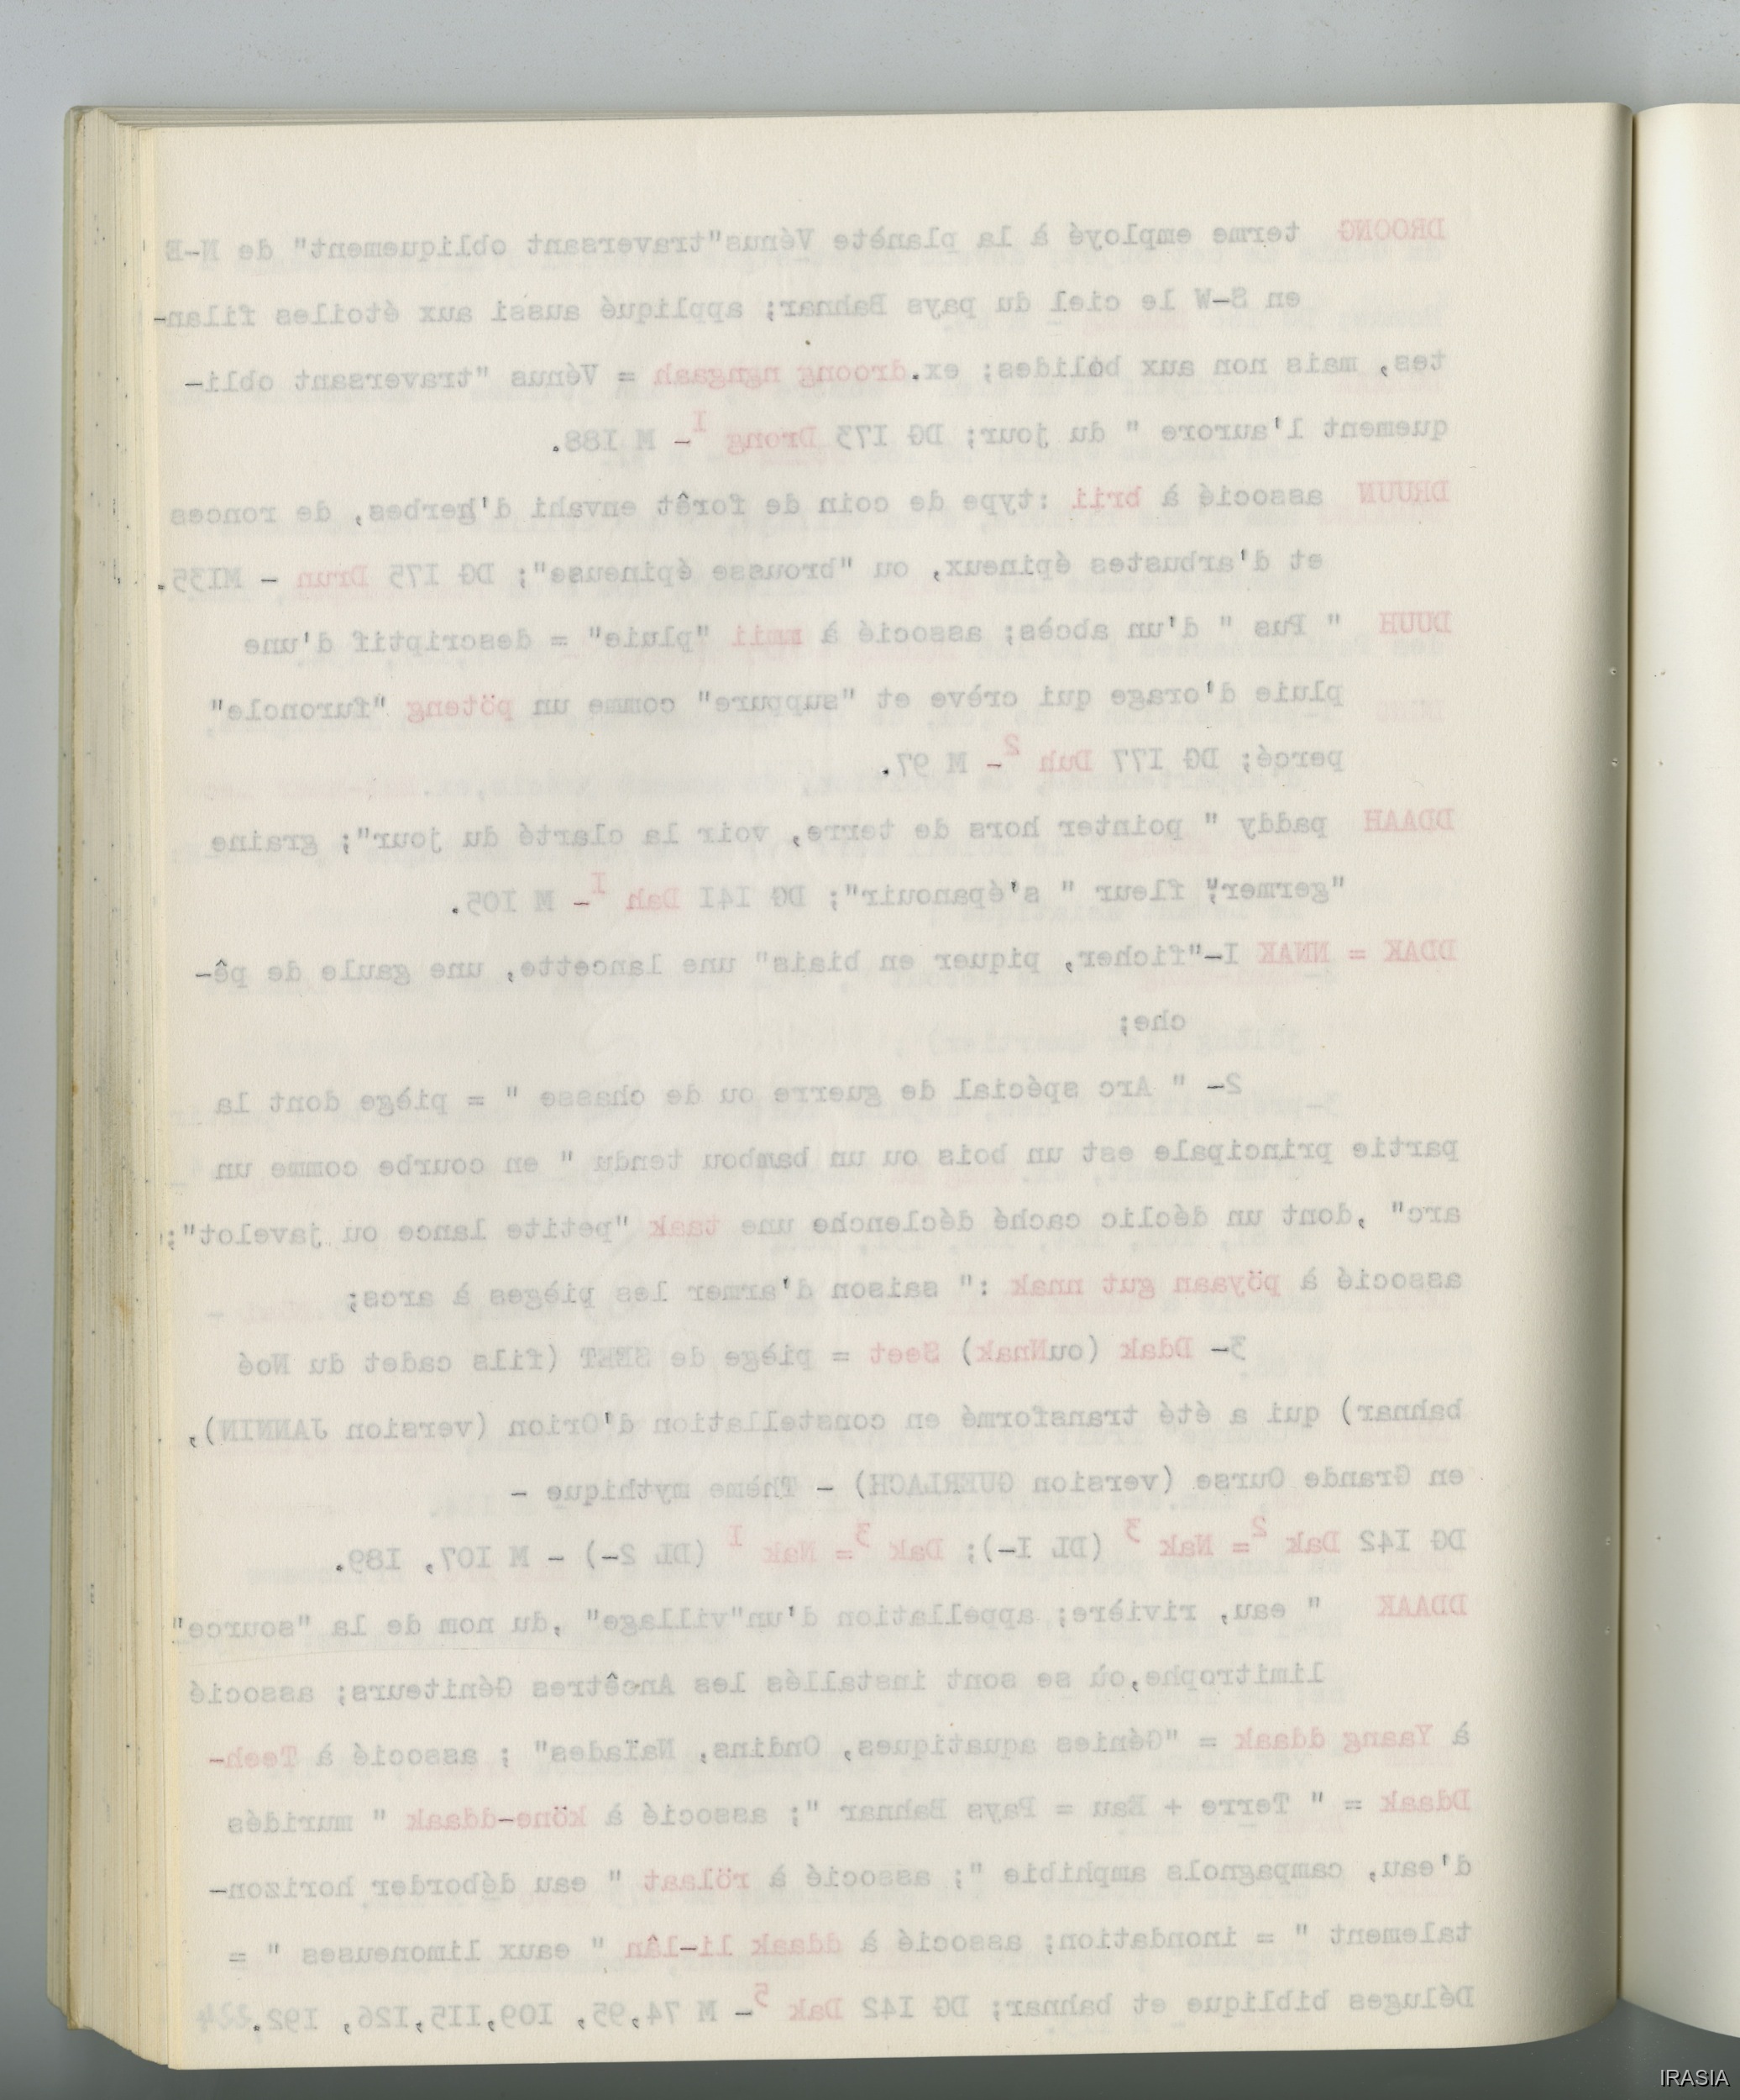 DROONG terme employé à la planète Vénus"traversant obliquement" de N-E
en S-W le ciel du pays Bahnar; appliqué aussi aux étoiles filan-
tes, mais non aux bolides; ex.droong ngngaah = Vénus "traversant obli-
quement l'aurore " du jour; DG I73 Drong I- M I88.
DRUUN associé à brii :type de coin de forêt envahi d'herbes, de ronces
et d'arbustes épineux, ou "brousse épineuse"; DG I75 Drun - MI35.
DUUH " Pus " d'un abcès; associé à mmii "pluie" = descriptif d'une
pluie d'orage qui crève et "suppure" comme un pöteng "furoncle"
percé; DG I77 Duh 2- M 97.
DDAAH paddy " pointer hors de terre, voir la clarté du jour"; graine
"germer"; fleur " s'épanouir"; DG I4I Dah I- M I05.
DDAK = NNAK I-"ficher, piquer en biais" une lancette, une gaule de pê-
che;
2- " Arc spécial de guerre ou de chasse " = piège dont la
partie principale est un bois ou un bambou tendu " en courbe comme un
arc" ,dont un déclic caché déclenche une taak "petite lance ou javelot";
associé à pöyaan gut nnak :" saison d'armer les pièges à arcs;
3- Ddak (ouNnak) Seet = piège de SEET (fils cadet du Noé
bahnar) qui a été transformé en constellation d'Orion (version JANNIN),
en Grande Ourse (version GUERLACH) - Thème mythique -
DG I42 Dak 2= Nak 3 (DL I-); Dak 3= Nak I (DL 2-) - M I07, I89.
DDAAK " eau, rivière; appellation d'un"village" ,du nom de la "source"
limitrophe,où se sont installés les Ancêtres Géniteurs; associé
à Yaang ddaak = "Génies aquatiques, Ondins, Naïades" ; associé à Teeh-
Ddaak = " Terre + Eau = Pays Bahnar "; associé à köne-ddaak " muridés
d'eau, campagnols amphibie "; associé à rölaat " eau déborder horizon-
talement " = inondation; associé à ddaak li-lân " eaux limoneuses " =
Déluges biblique et bahnar; DG I42 Dak 5- M 74,95, I09,II5,I26, I92.
IRASIA